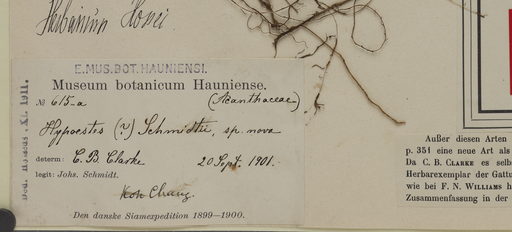 Herbarium Hosei
E.MUS.BOT.HAUNIENSI.
Museum botanicum Hauniense.
№ 615-a (Acanthaceae)
Hypoestes (?) Schmidtii, sp. nova
determ: C. B. Clarke 20 Sept. 1901.
legit: Johs. Schmidt.
Koh Chang.
Den danske Siamexpedition 1899—1900.
XI. 1911.
Außer diesen Arten
p. 351 eine neue Art als
Da C. B. CLARKE es selb
Herbarexemplar der Gattu
wie bei F. N. WILLIAMS h
Zusammenfassung in der